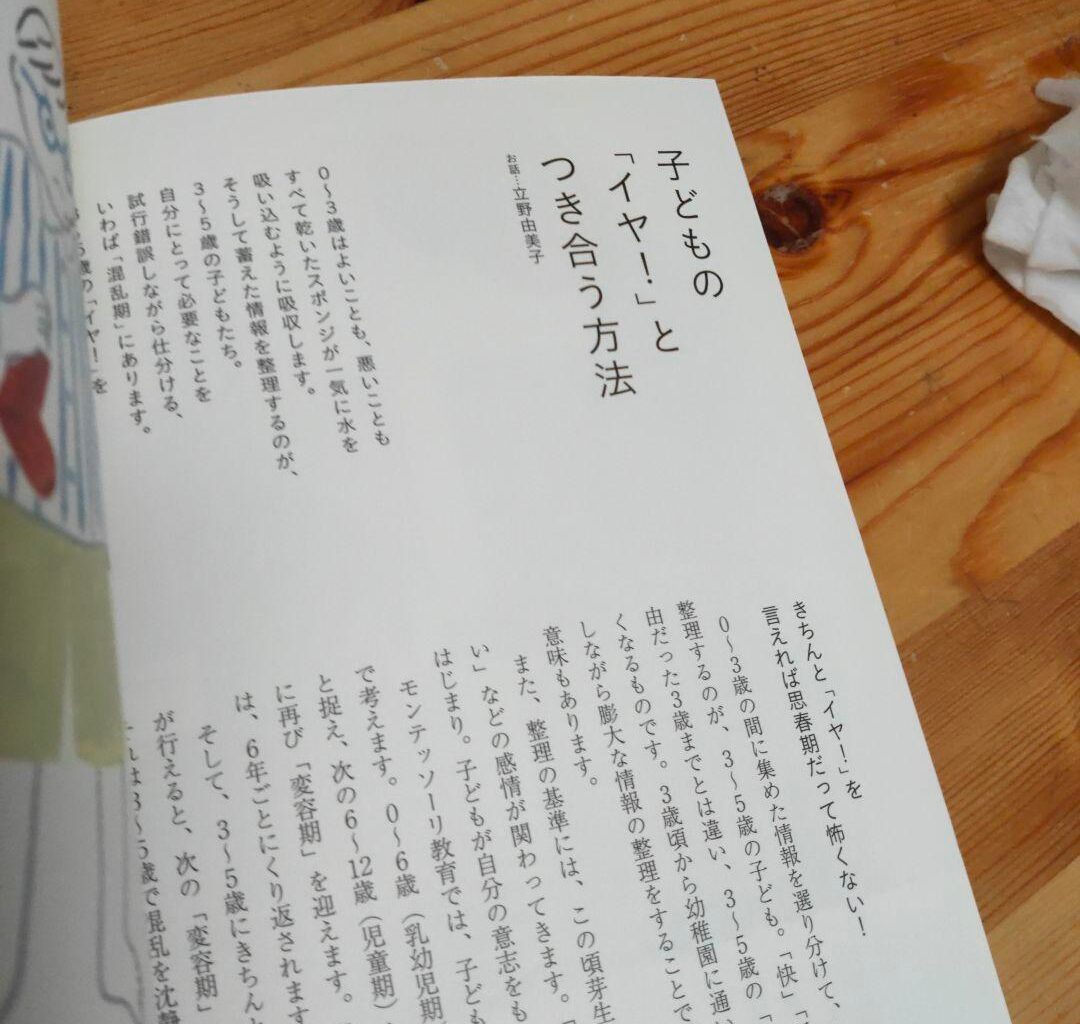 子どもの
「イヤ！」と
つき合う方法
お話…立野由美子
0〜3歳はよいことも、悪いことも
すべて乾いたスポンジが一気に水を
吸い込むように吸収します。
そうして蓄えた情報を整理するのが、
3〜5歳の子どもたち。
自分にとって必要なことを
試行錯誤しながら仕分ける、
いわば「混乱期」にあります。
5歳の「イヤ！」を
きちんと「イヤ！」を
言えれば思春期だって怖くない！
0〜3歳の間に集めた情報を選り分けて、
整理するのが、3〜5歳の子ども。「快」「
由だった3歳までとは違い、3〜5歳の「
くなるものです。3歳頃から幼稚園に通い
しながら膨大な情報の整理をすることで
意味もあります。
また、整理の基準には、この頃芽生
い」などの感情が関わってきます。「
はじまり。子どもが自分の意志をも
モンテッソーリ教育では、子ども
で考えます。0〜6歳（乳幼児期
と捉え、次の6〜12歳（児童期）
に再び「変容期」を迎えます。
は、6年ごとにくり返されます
そして、3〜5歳にきちん
が行えると、次の「変容期」
れは3〜5歳で混乱を沈静